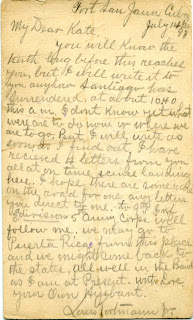 Port San Juan Cuba
July 14th/98
My Dear Kate.
You will know the
truth long before this reaches
you, but I will write it to
you anyhow Santiago has
surrendered, at about 10.40
this a.m. I don't know yet what
we are to do, now or where we
are to go. But I will write as
soon as I find out, I have
recieved 4 letters from you
all at on time sinse landing
here. I hope there are some more
on the road. for one any letters
you direct to me, to
Division 5th Army Corps will
follow me. we may go to
Puerta Rico, from this place
and we might come back to
the states. All well in the Band
as I am at Present. With Love
your Own Husbant.
Louis Portmann Jr.